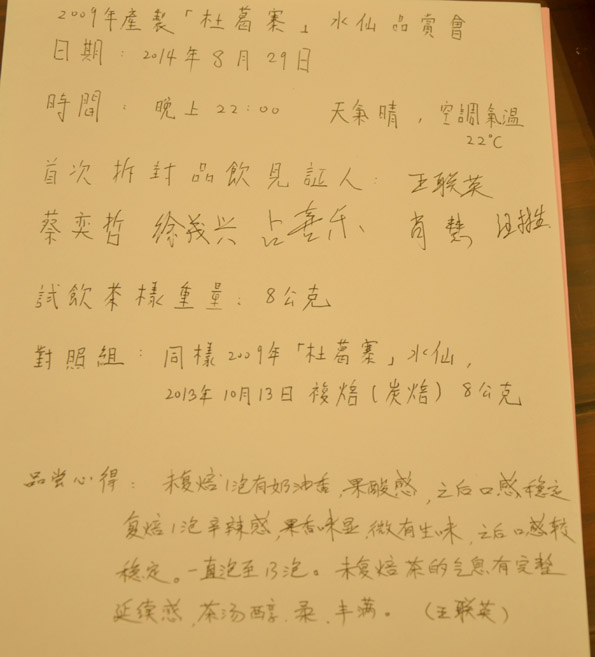 2009年產製「杜葛寨」水仙品賞會
日期：2014年8月29日
時間：晚上22:00 天氣晴，空調氣溫
22°C
首次拆封品飲見証人：王联英
蔡奕哲 徐茂兴 占喜乐、肖慧
試飲茶樣重量：8公克
對照組：同樣2009年「杜葛寨」水仙，
2013年10月13日 複焙(炭焙) 8公克
品尝心得：未复焙1泡有奶油香，果酸感，之后口感稳定
复焙1泡辛辣感，果香味显，微有生味，之后口感较
稳定。一直泡至13泡。未复焙茶的气息有完整
延续感，茶汤醇.柔.丰满。（王联英）